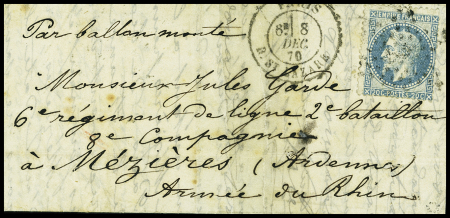 Par ballon monté
PARIS
6E 8
DEC
70
EMPIRE FRANC
20C POSTES 20C
Monsieur Jules Garde
6e régiment de ligne 2e bataillon
8e Compagnie
à Mézières (Ardennes)
Armée du Rhin